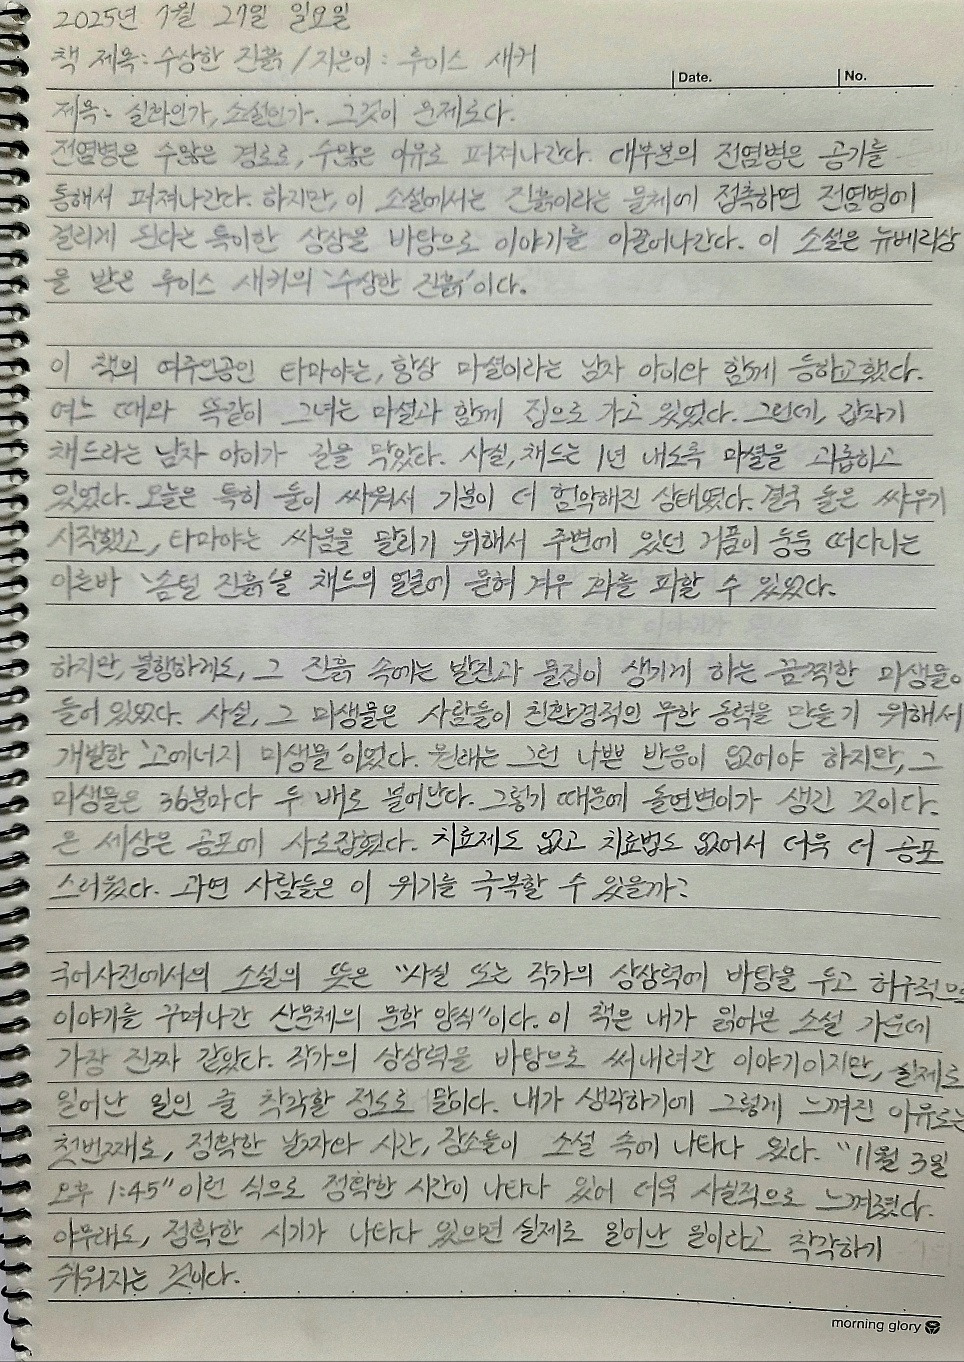 2025년 1월 27일 일요일
책 제목: 수상한 진흙 / 지은이: 루이스 새커
Date. No.
제목: 실화인가, 소설인가. 그것이 문제로다.
전염병은 수많은 경로로, 수많은 이유로 퍼져나간다. 대부분의 전염병은 공기를
통해서 퍼져나간다. 하지만, 이 소설에서는 진흙이라는 물체에 접촉하면 전염병에
걸리게 된다는 특이한 상상을 바탕으로 이야기를 이끌어나간다. 이 소설은 뉴베리상
을 받은 루이스 새커의 '수상한 진흙'이다.
이 책의 여주인공인 타마야는, 항상 마셜이라는 남자 아이와 함께 등하교했다.
여느 때와 똑같이 그녀는 마셜과 함께 집으로 가고 있었다. 그런데, 갑자기
채드라는 남자 아이가 길을 막았다. 사실, 채드는 1년 내도록 마셜을 괴롭히고
있었다. 오늘은 특히 둘이 싸워서 기분이 더 험악해진 상태였다. 결국 둘은 싸우기
시작했고, 타마야는 싸움을 말리기 위해서 주변에 있던 거품이 둥둥 떠다니는
이른바 '솜털 진흙'을 채드의 얼굴에 묻혀 겨우 화를 피할 수 있었다.
하지만, 불행하게도, 그 진흙 속에는 발진과 물집이 생기게 하는 끔찍한 미생물이
들어 있었다. 사실, 그 미생물은 사람들이 친환경적의 무한 동력을 만들기 위해서
개발한 '고에너지 미생물'이었다. 원래는 그런 나쁜 반응이 없어야 하지만, 그
미생물은 36분마다 두 배로 불어난다. 그렇기 때문에 돌연변이가 생긴 것이다.
온 세상은 공포에 사로잡혔다. 치료제도 없고 치료법도 없어서 더욱 더 공포
스러웠다. 과연 사람들은 이 위기를 극복할 수 있을까?
국어사전에서의 소설의 뜻은 "사실 또는 작가의 상상력에 바탕을 두고 허구적으로
이야기를 꾸며나간 산문체의 문학 양식"이다. 이 책은 내가 읽어본 소설 가운데
가장 진짜 같았다. 작가의 상상력을 바탕으로 써내려간 이야기이지만, 실제로
일어난 일인 줄 착각할 정도로 말이다. 내가 생각하기에 그렇게 느껴진 이유로는
첫번째로, 정확한 날짜와 시간, 장소들이 소설 속에 나타나 있다. "11월 3일
오후 1:45" 이런 식으로 정확한 시간이 나타나 있어 더욱 사실적으로 느껴졌다.
아무래도, 정확한 시기가 나타나 있으면 실제로 일어난 일이라고 착각하기
쉬워지는 것이다.
morning glory